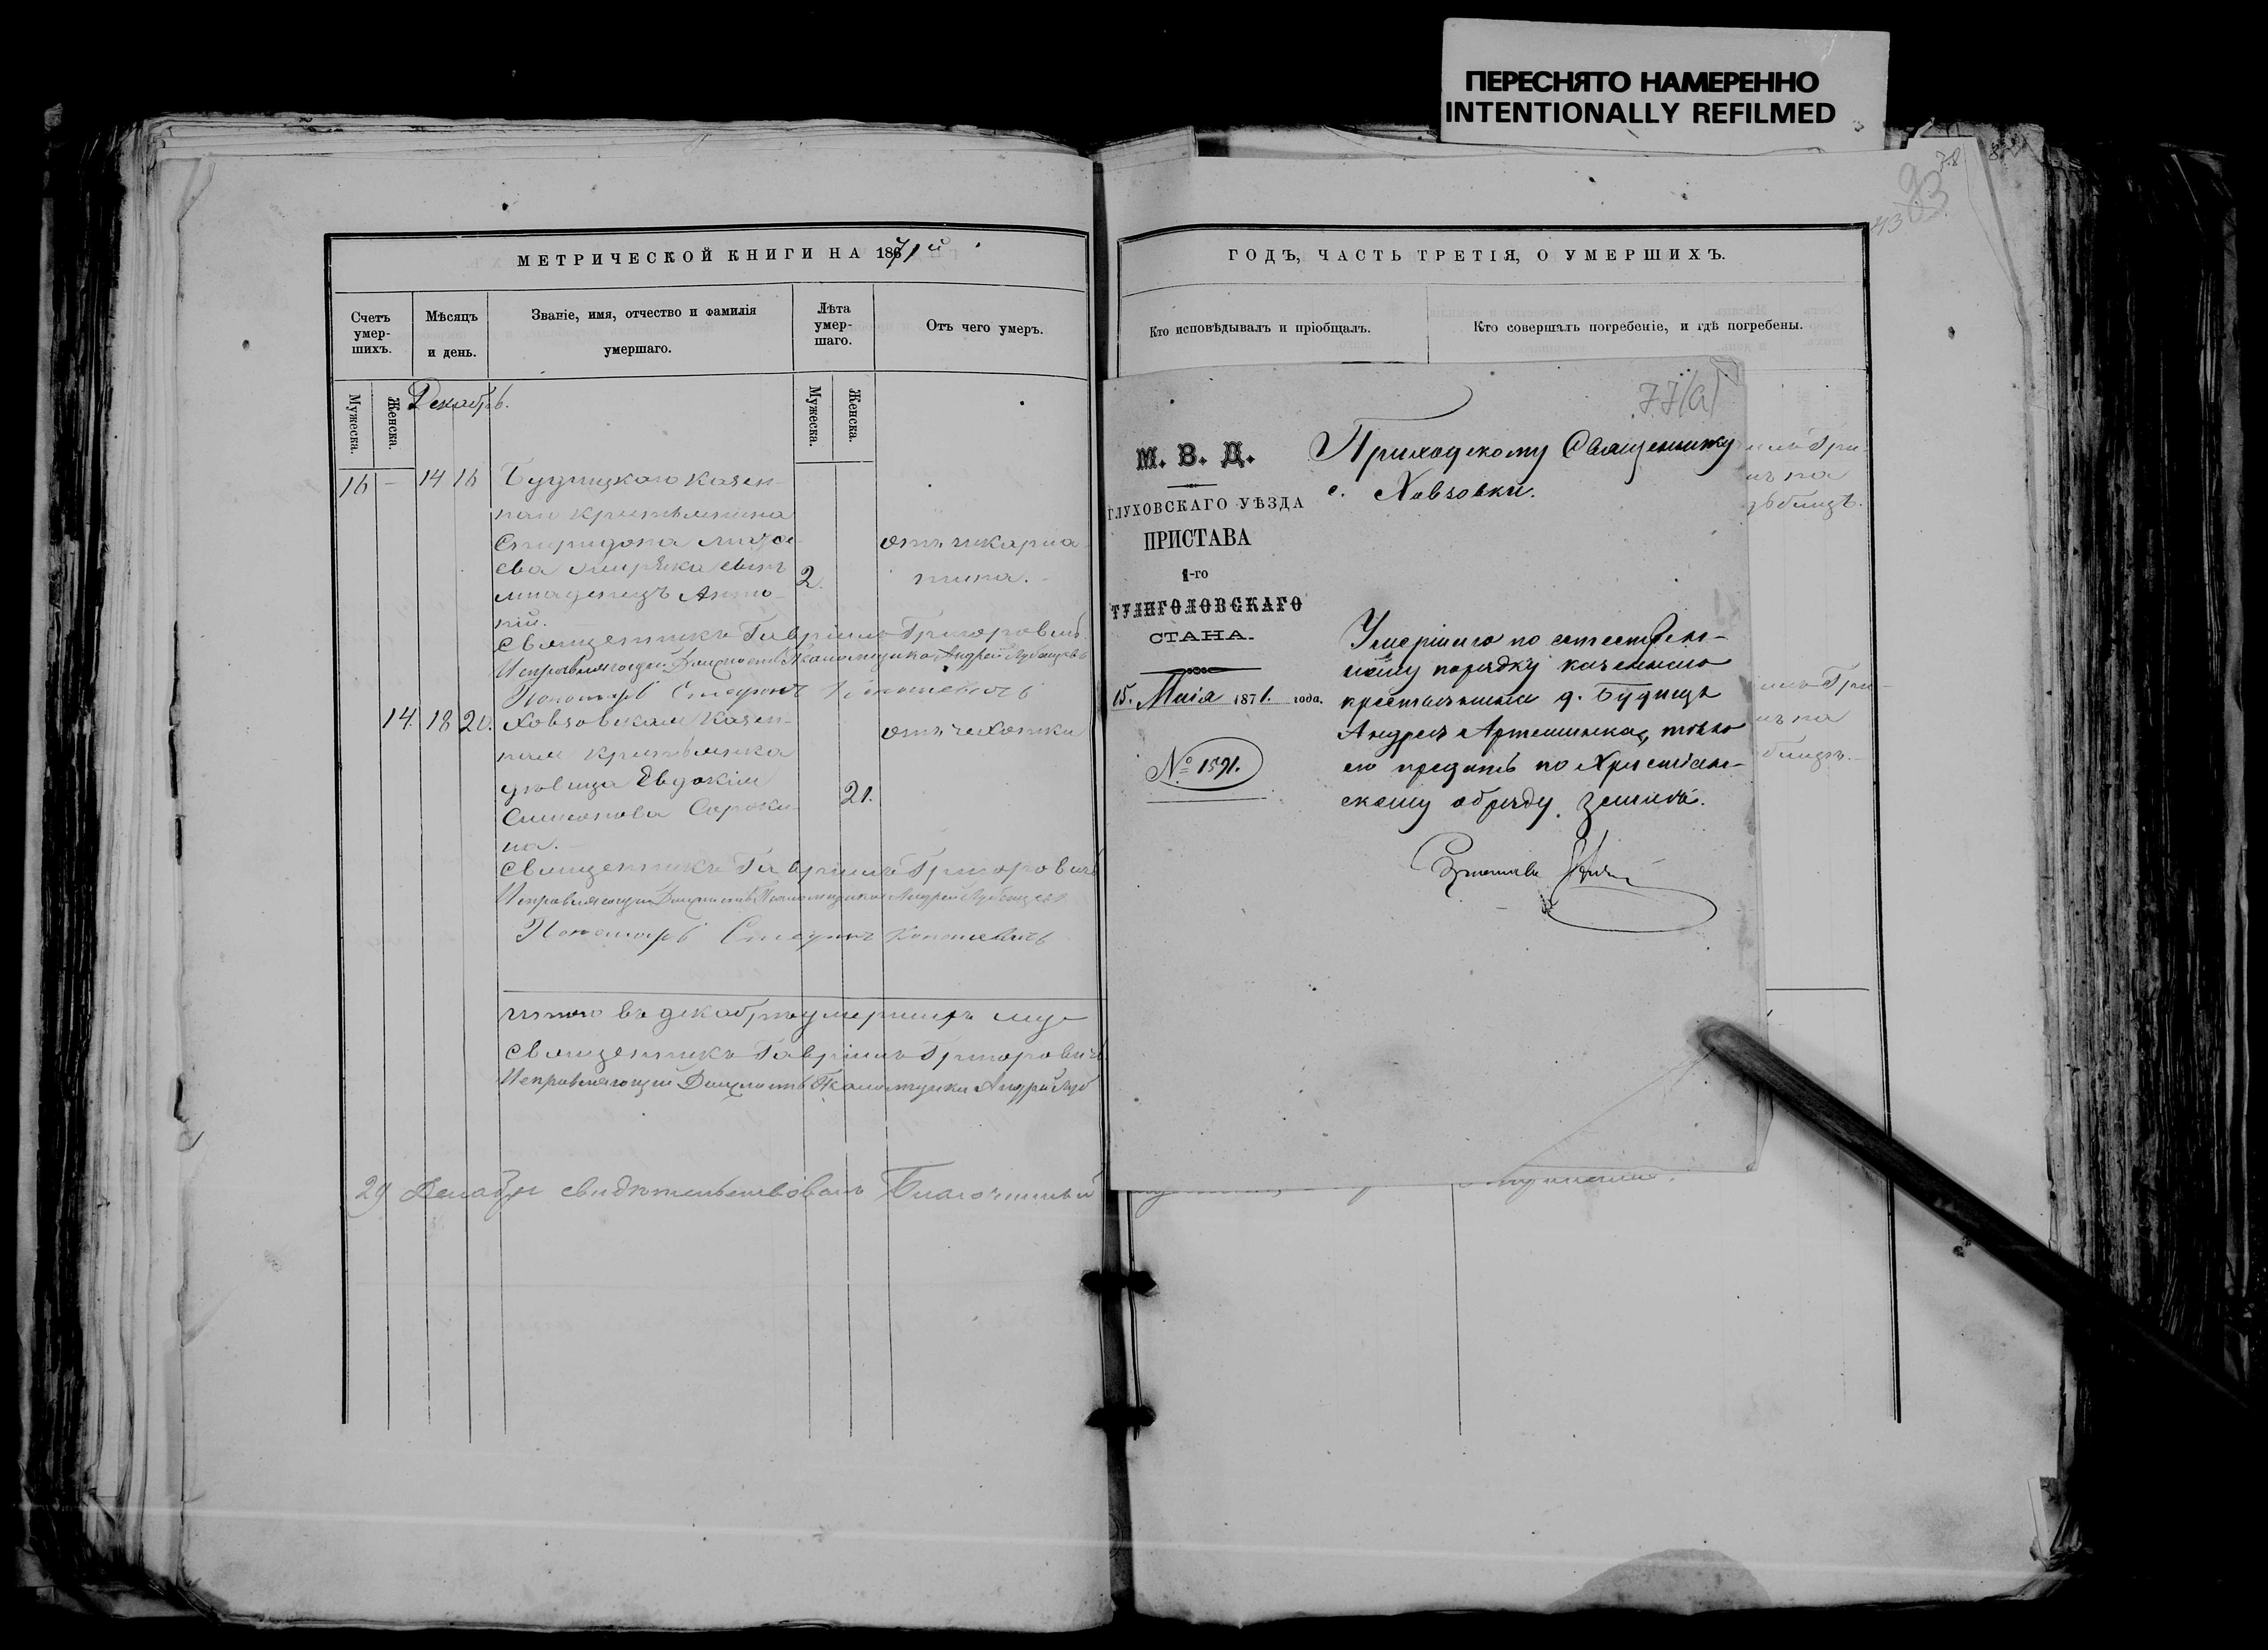 ПЕРЕСНЯТО НАМЕРЕННО
INTENTIONALLY REFILMED
МЕТРИЧЕСКОЙ КНИГИ НА 1871й
Счетъ умер-шихъ.
Мѣсяцъ и день.
Званіе, имя, отчество и фамилія умершаго.
Лѣта умер-шаго.
Отъ чего умеръ.
Мужеска.
Женска.
Мужеска.
Женска.
Декабрь.
16 - 14 16 Будищкаго казен-
наго крестьянина
Спиридона отъ
сынъ 2.
младенецъ Анто-
ній.
Священникъ Гавріилъ Григоровичъ
Исправляющій Должность Псаломщика Андрей
Пономарь Стефанъ
14. 18 20. Ховзовская казен- отъ чахотки
ная крестьянка
вдовица Евдокія 21.
Симонова Сороки-
на.
Священникъ Гавріилъ Григоровичъ
Исправляющій Должность Псаломщика Андрей
Пономарь Стефанъ
Итого въ декабрѣ умершихъ муж
Священникъ Гавріилъ Григоровичъ
Исправляющій Должность Псаломщика Андрей
29 Декабря свидѣтельствовалъ Благочинный
ГОДЪ, ЧАСТЬ ТРЕТІЯ, О УМЕРШИХЪ.
Кто исповѣдывалъ и пріобщалъ.
Кто совершалъ погребеніе, и гдѣ погребены.
93
43
78
77(а)
М. В. Д.
ГЛУХОВСКАГО УѢЗДА
ПРИСТАВА
1-го
ТУЛИГОЛОВСКАГО
СТАНА.
15. Маія 1871. года.
№ 1591.
Приходскому Священнику
с. Ховзовки.
Умершаго по естествен-
ному порядку казеннаго
крестьянина д. Будищъ
Андрея Артешинка, тѣло
его предать по Христіан-
скому обряду земли.
Приставъ